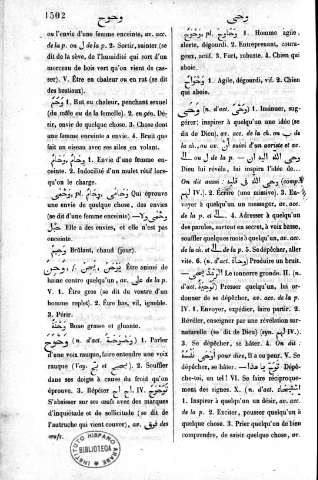 1502
وحوح
وحى
ou l'envie d'une femme enceinte, av. acc.
de la p. ou ل de la p. 2. Sortir, suinter (se
dit de la sève, de l'humidité qui sort d'un
morceau de bois vert qu'on vient de cas-
ser). V. Être en chaleur ou en rut (se dit
des bestiaux).
1. Rut ou chaleur, penchant sexuel
(du mâle ou de la femelle). 2. en gén. Dé-
sir, envie de quelque chose. 3. Chose dont
une femme enceinte a envie. 4. Bruit que
fait un oiseau avec ses ailes en volant.
1. Envie d'une femme en-
ceinte. 2. Indocilité d'un mulet rétif lors-
qu'on le charge.
pl. Qui éprouve
une envie de quelque chose, des envies
(se dit d'une femme enceinte)
Elle a des envies, et elle n'est pas
enceinte.
Brûlant, chaud (jour).
Être animé de
haine contre quelqu'un, av. على de la p.
V. 1. Être gros (se dit du ventre d'un
homme replet). 2. Être bas, vil, ignoble.
3. Périr.
Boue grasse et gluante.
(n. d'act.) 1. Parler
d'une voix rauque, faire entendre une voix
rauque (Voy.). 2. Souffler
dans ses doigts à cause du froid qu'on
éprouve. 3. Répéter
S'abaisser sur ses œufs avec des marques
d'inquiétude et de sollicitude (se dit de
l'autruche qui vient couver), av. فوق des
œufs.
pl. 1. Homme agile,
alerte, dégourdi. 2. Entreprenant, coura-
geux, actif. 3. Fort, robuste. 4. Chien qui
aboie.
1. Agile, dégourdi, vif. 2. Chien
qui aboie.
(n. d'act.) 1. Insinuer, sug-
gérer; inspirer à quelqu'un une idée (se
dit de Dieu), av. acc. de la ch. ou ب de
la ch., ou av. أن suivi d'un aoriste et av.
ou ل de la p.
Dieu lui révéla, lui inspira l'idée de...
On dit aussi
IV.) 2. Écrire (une missive). 3. En-
voyer à quelqu'un un messager, av. acc.
de la p. et 4. Adresser à quelqu'un
des paroles, surtout en secret, à voix basse,
souffler quelques mots à quelqu'un, av. acc.
des par. et av. de la p. 5. Se dépêcher, aller
vite. 6. (n. d'act.) Produire un bruit.
Le tonnerre gronde. II. (n.
d'act.) Presser quelqu'un, lui or-
donner de se dépêcher, av. acc. de la p.
IV. 1. Envoyer, expédier, faire partir. 2.
Révéler, enseigner par une révélation sur-
naturelle (se dit de Dieu) (syn. IV.).
3. Se dépêcher, se hâter. 4. On dit:
pour dire, Il a eu peur. V. Se
dépêcher, se hâter. Dépê-
che-toi, un tel! VI. Se faire réciproque-
ment des signes. X. (n. d'act.)
1. Inspirer à quelqu'un un désir, av. acc.
de la p. 2. Exciter, pousser quelqu'un à
quelque chose. 3. Prier quelqu'un de bien
comprendre, de saisir quelque chose, av.
INSTITUTO HISPANO ARABE
BIBLIOTECA